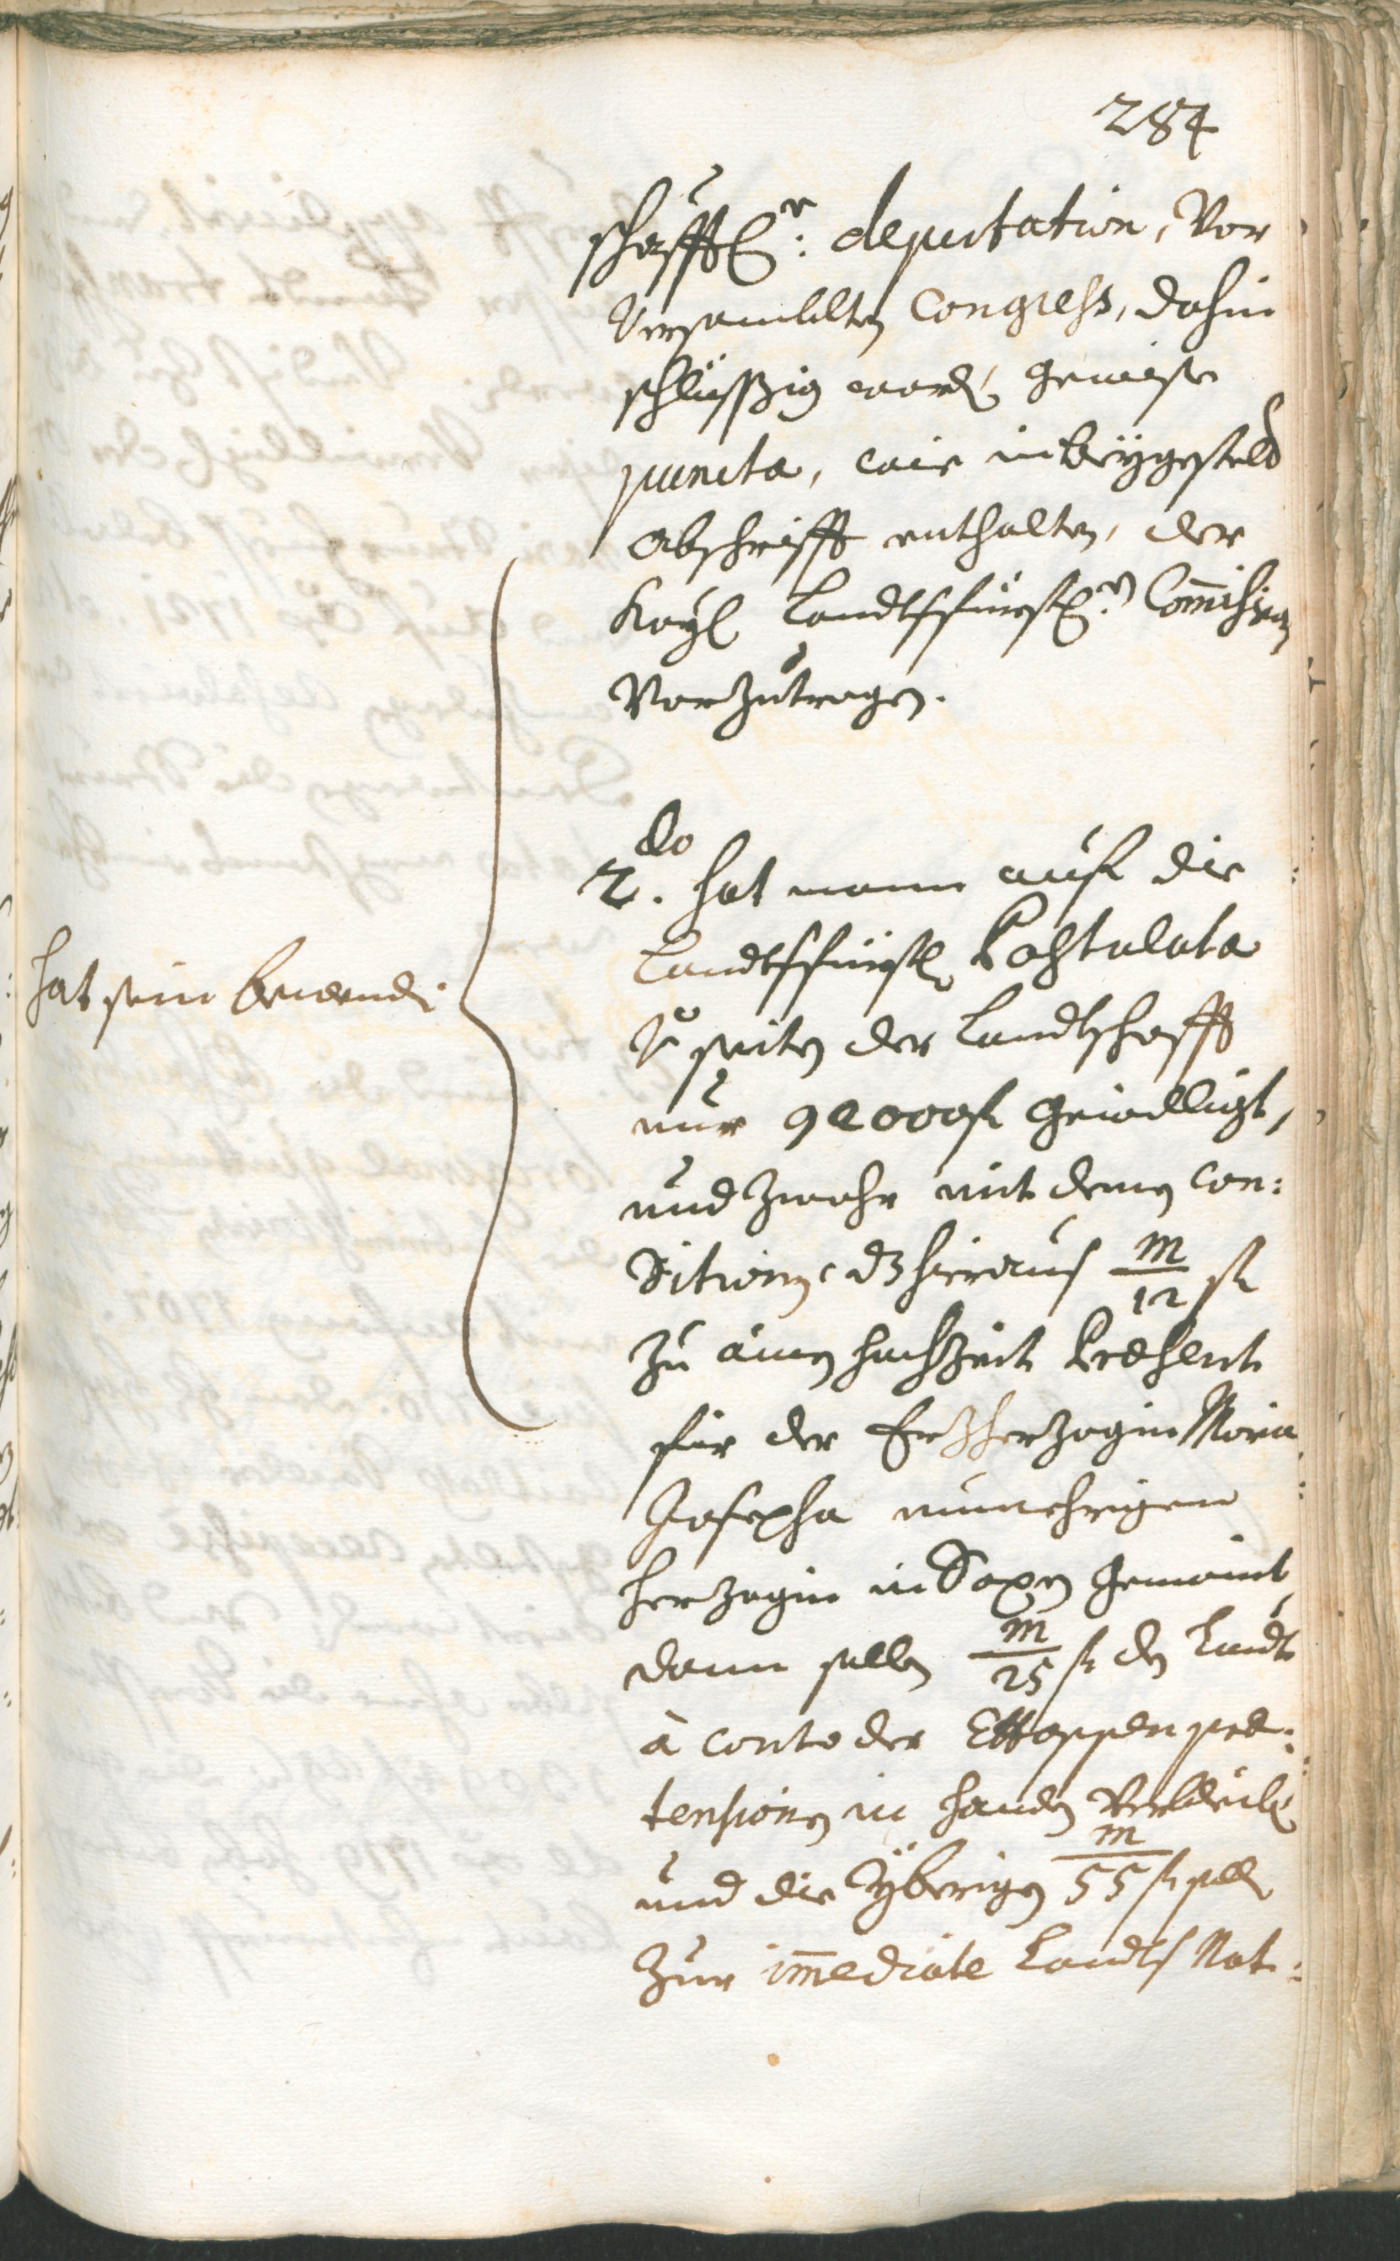 284
schafftl.r: deputation, Vor
Versambleten Congress, dahin
schlüssig word, gewise
puncta, wie in beÿgesteld
Abschrifft enthalten, der
Kaÿl Landtsfürstl.n Com̅ission
Vorzutragen.
2.do hat mann auf die
Landtsfürstl Postulata
V: seiten der Landtschafft
nur 92000 fl gewilligt,
und zwahr mit dem con:
ditione, dz hierauf m/12 fl
zu ainen hochzeit Præsent
für der Erzherzogin Maria
Josepha nunmehrigen
Herzogin in Saxen gemaint,
dann sollen m/25 fl den Landt
à conto der Ettappen præ:
tensionen in handen
und die Übrigen m/55 fl soll
zur im̅ediate Landts Not:
hat sein bewenden